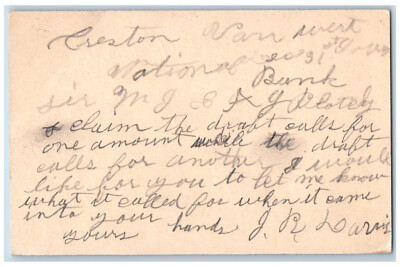 Creston Van wert
National
Bank
sir M J C & J
& claim the draft calls for
one amount while the draft
calls for another I would
like for you to let me know
what it called for when it came
into your hands J. R. Davis
yours